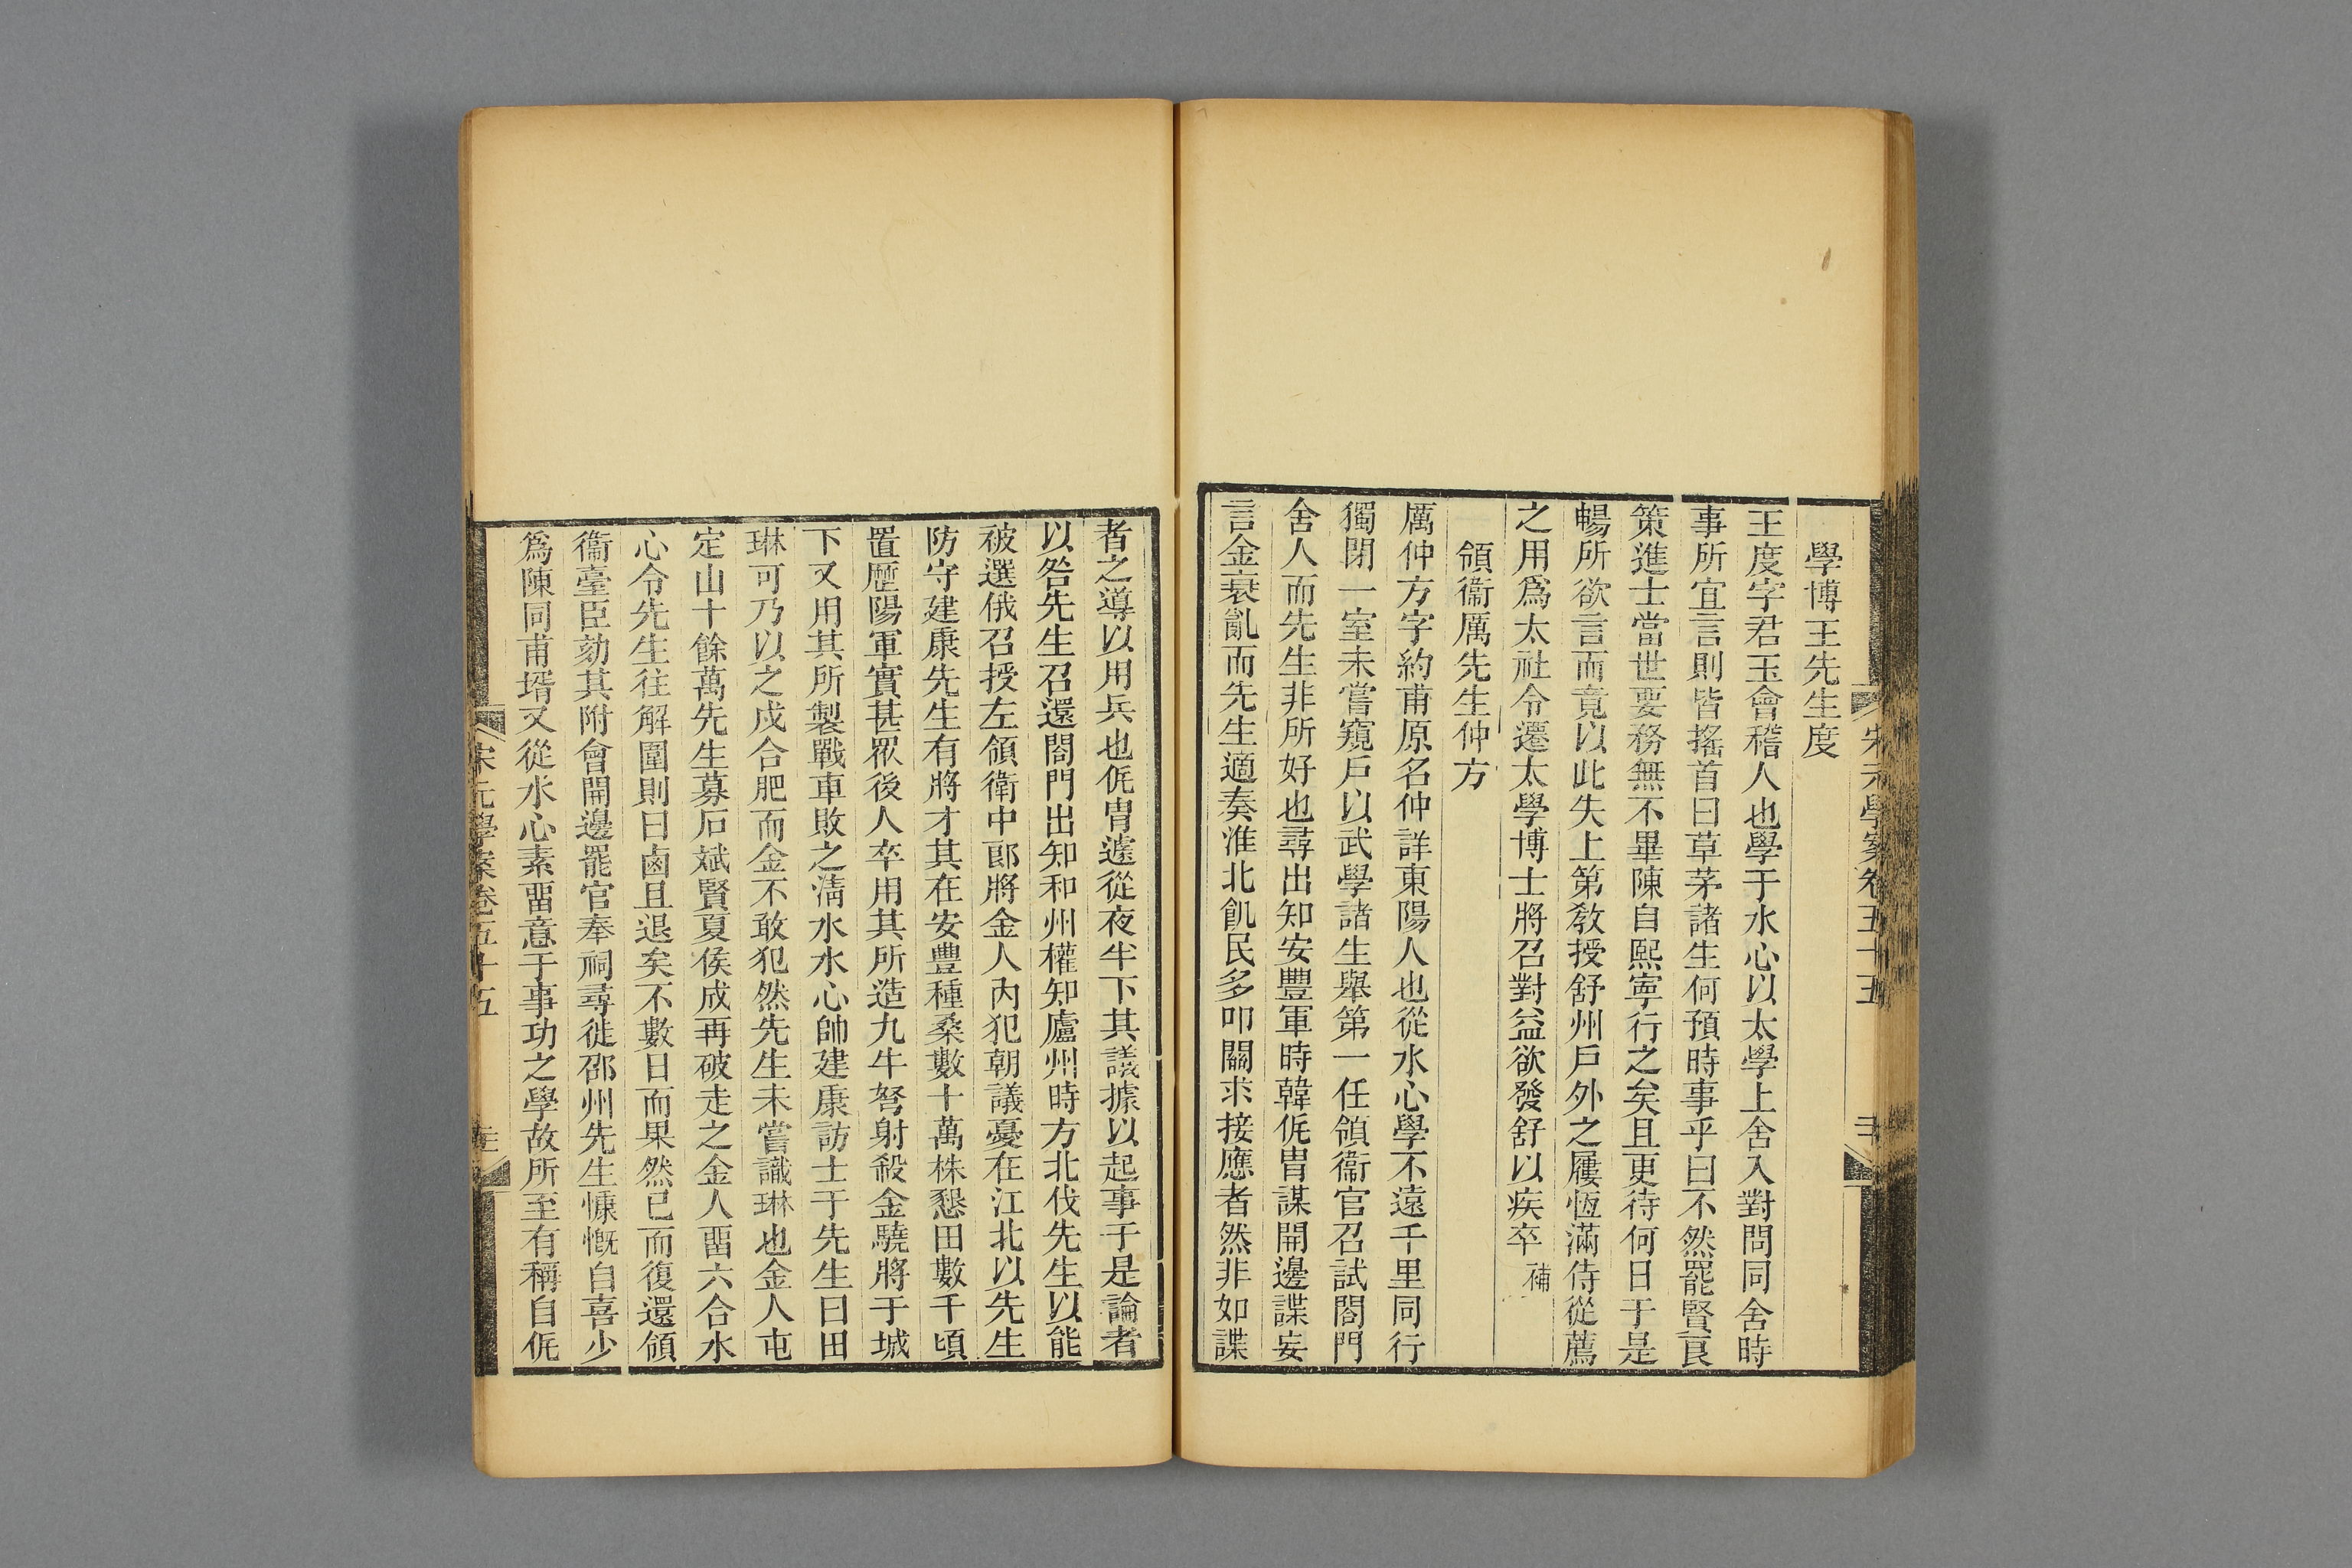 宋元學案卷五十五
學博王先生度
王度字君玉會稽人也學于水心以太學上舍入對問同舍時
事所宜言則皆搖首曰草茅諸生何預時事乎曰不然罷賢良
策進士當世要務無不畢陳自熙寧行之矣且更待何日于是
暢所欲言而竟以此失上第敎授舒州戶外之屨恆滿侍從薦
之用爲太社令遷太學博士將召對益欲發舒以疾卒補
領衞厲先生仲方
厲仲方字約甫原名仲詳東陽人也從水心學不遠千里同行
獨閉一室未嘗窺戶以武學諸生舉第一任領衞官召試閤門
舍人而先生非所好也尋出知安豐軍時韓侂冑謀開邊諜妄
言金衰亂而先生適奏淮北飢民多叩關求接應者然非如諜
者之導以用兵也侂冑遽從夜半下其議據以起事于是論者
以咎先生召還閤門出知和州權知廬州時方北伐先生以能
被選俄召授左領衛中郎將金人內犯朝議憂在江北以先生
防守建康先生有將才其在安豐種桑數十萬株懇田數千頃
置歷陽軍實甚眾後人卒用其所造九牛弩射殺金驍將于城
下又用其所製戰車敗之淸水水心帥建康訪士于先生曰田
琳可乃以之戍合肥而金不敢犯然先生未嘗識琳也金人屯
定山十餘萬先生募石斌賢夏侯成再破走之金人畱六合水
心令先生往解圍則曰鹵且退矣不數日而果然已而復還領
衞臺臣劾其附會開邊罷官奉祠尋徙邵州先生慷慨自喜少
爲陳同甫壻又從水心素畱意于事功之學故所至有稱自侂
宋元學案卷五十五